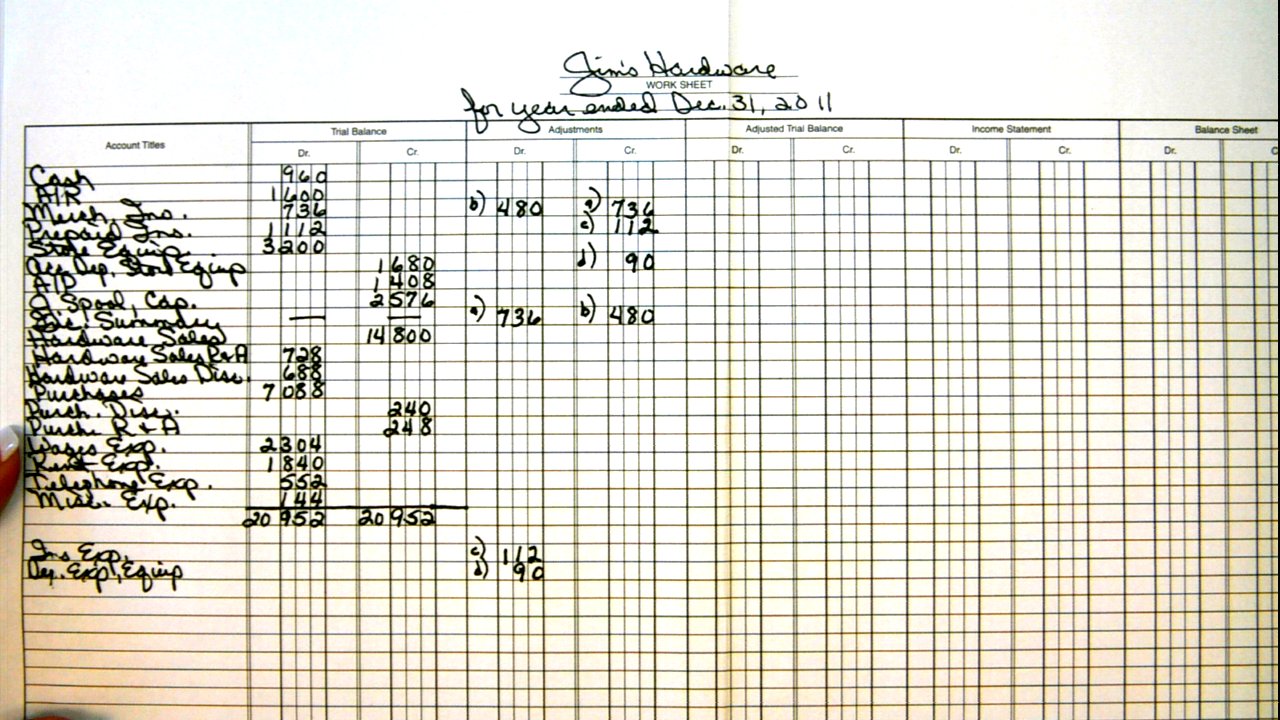 Jim's Hardware
WORK SHEET
for year ended Dec. 31, 2011
Trial Balance Adjustments Adjusted Trial Balance Income Statement Balance Sheet
Account Titles
Dr. Cr. Dr. Cr. Dr. Cr. Dr. Cr. Dr. C
Cash 960
A/R 1600
Merch. Inv. 736 b) 480 a) 736
Prepaid Ins. 1112 c) 112
Store Equip. 3200
Acc. Dep., Store Equip 1680 d) 90
A/P 1408
J. Spool, Cap. 2576
Inc. Summary — — a) 736 b) 480
Hardware Sales 14800
Hardware Sales R+A 728
Hardware Sales Disc. 688
Purchases 7088
Purch. Disc. 240
Purch. R+A 248
Wages Exp. 2304
Rent Exp. 1840
Telephone Exp. 552
Misc. Exp. 144
20952 20952
Ins Exp. c) 112
Dep. Exp., Equip d) 90